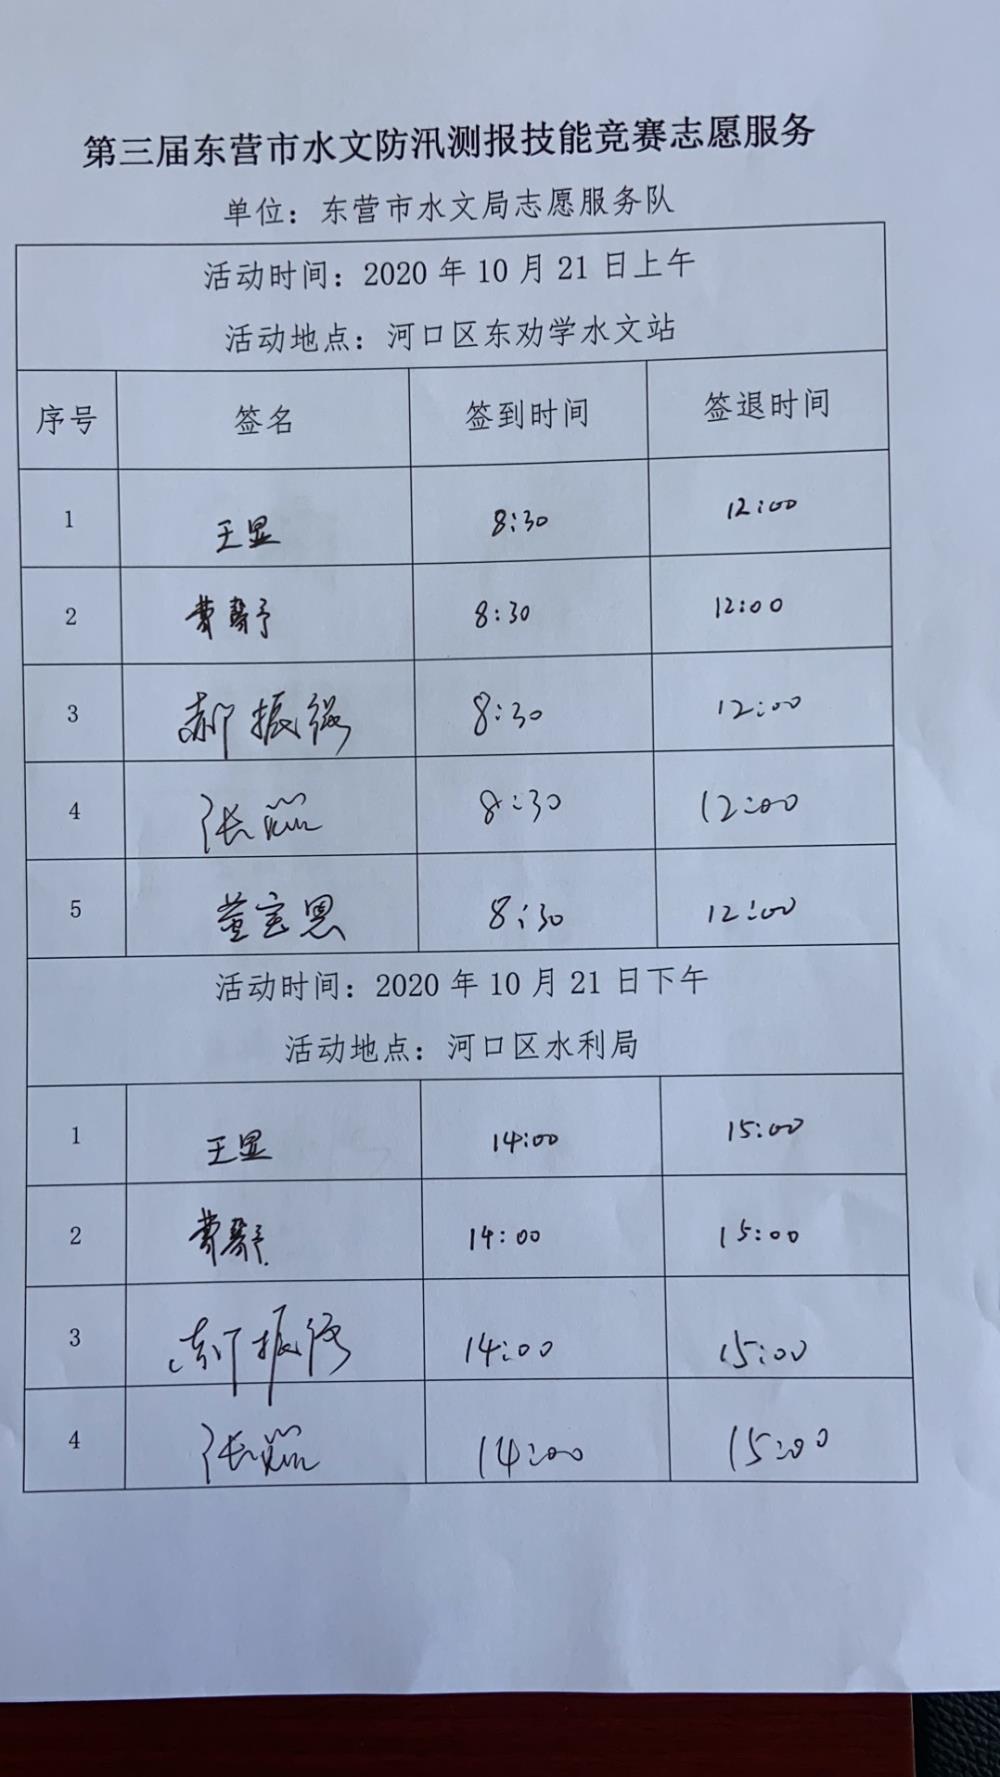 第三届东营市水文防汛测报技能竞赛志愿服务
单位：东营市水文局志愿服务队
活动时间：2020 年 10 月 21 日上午
活动地点：河口区东劝学水文站
序号 签名 签到时间 签退时间
1 王显 8:30 12:00
2 8:30 12:00
3 郝振强 8:30 12:00
4 张 8:30 12:00
5 董宝恩 8:30 12:00
活动时间：2020 年 10 月 21 日下午
活动地点：河口区水利局
1 王显 14:00 15:00
2 14:00 15:00
3 郝振强 14:00 15:00
4 张 14:00 15:00